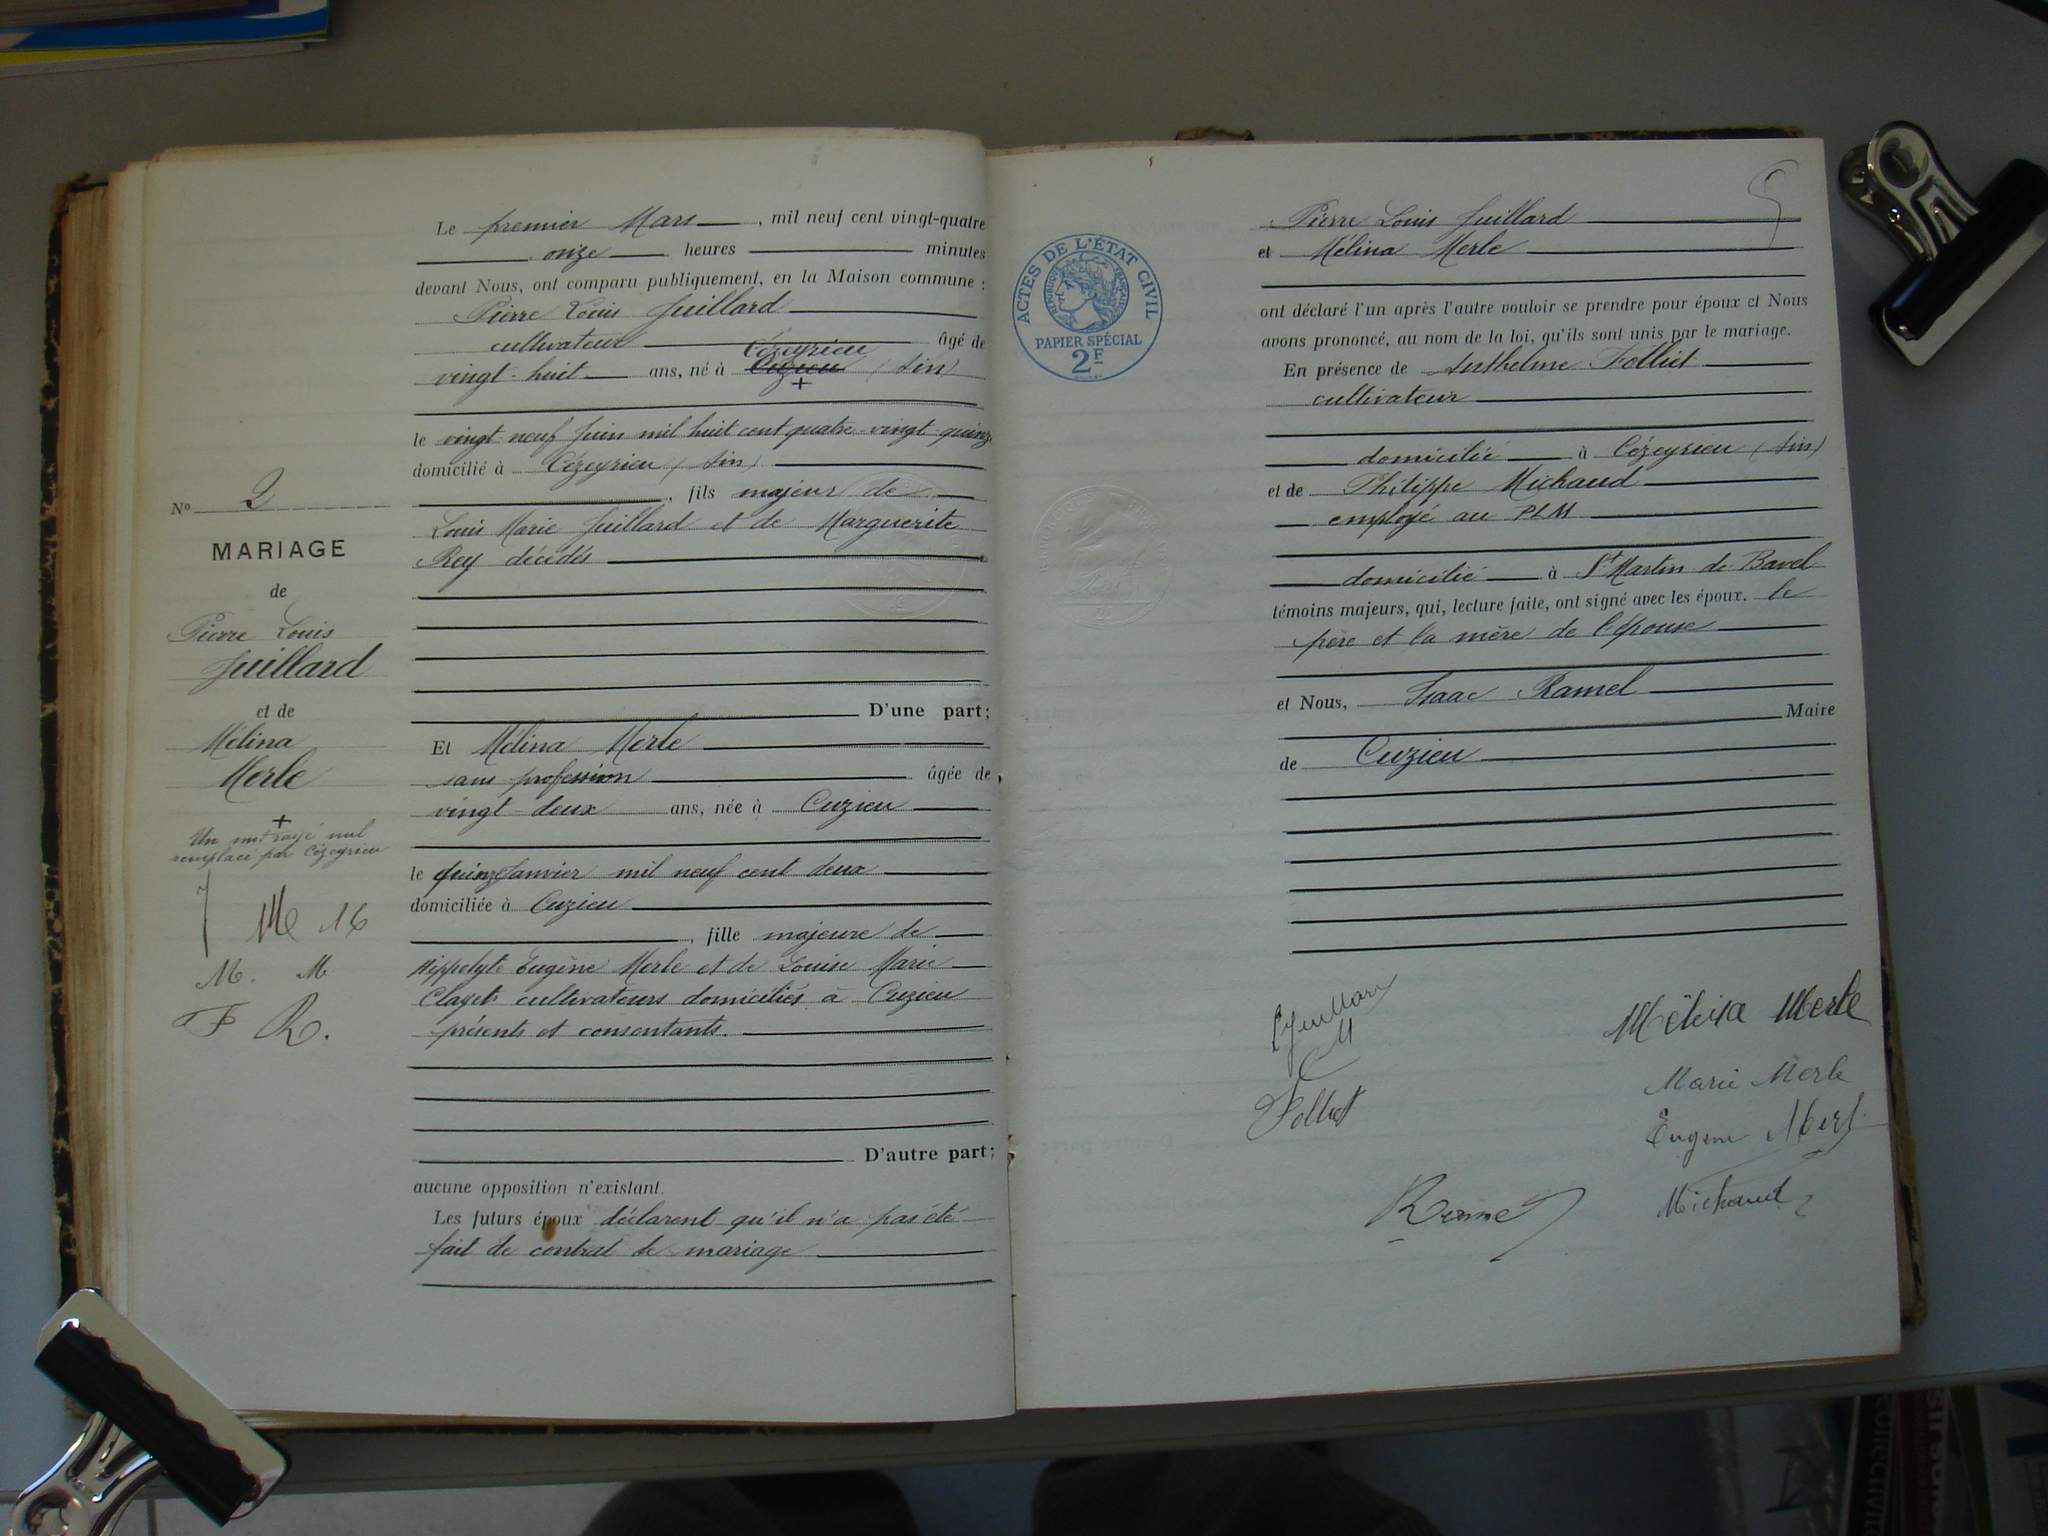 Le premier Mars, mil neuf cent vingt-quatre
onze heures minutes
devant Nous, ont comparu publiquement, en la Maison commune :
Pierre Louis Juillard
cultivateur âgé de
Cézeyrieu
vingt-huit ans, né à Cuzieu (Ain)
+
le vingt-neuf Juin mil huit cent quatre-vingt-quinze
domicilié à Cézeyrieu (Ain)
, fils majeur de
Louis Marie Juillard et de Marguerite
Rey décédés
D'une part;
Et Mélina Merle
sans profession âgée de
vingt-deux ans, née à Cuzieu
le quinze Janvier mil neuf cent deux
domiciliée à Cuzieu
, fille majeure de
Hippolyte Eugène Merle et de Louise Marie
Clayet cultivateurs domiciliés à Cuzieu
présents et consentants.
D'autre part;
aucune opposition n'existant.
Les futurs époux déclarent qu'il n'a pas été
fait de contrat de mariage
No 2
MARIAGE
de
Pierre Louis
Juillard
et de
Mélina
Merle
+
Un mot rayé nul
remplacé par Cézeyrieu
M. M
F R.
ACTES DE L'ÉTAT CIVIL
RÉPUBLIQUE FRANÇAISE
PAPIER SPÉCIAL
2F
5
Pierre Louis Juillard
et Mélina Merle
ont déclaré l'un après l'autre vouloir se prendre pour époux et Nous
avons prononcé, au nom de la loi, qu'ils sont unis par le mariage.
En présence de Anthelme Folliet
cultivateur
domicilié à Cézeyrieu (Ain)
et de Philippe Michaud
employé au PLM
domicilié à St Martin-de-Bavel
témoins majeurs, qui, lecture faite, ont signé avec les époux, le
père et la mère de l'épouse
et Nous, Isaac Ramel
Maire
de Cuzieu
Mélina Merle
Marie Merle
Folliet
Eugene Merl
Michaud